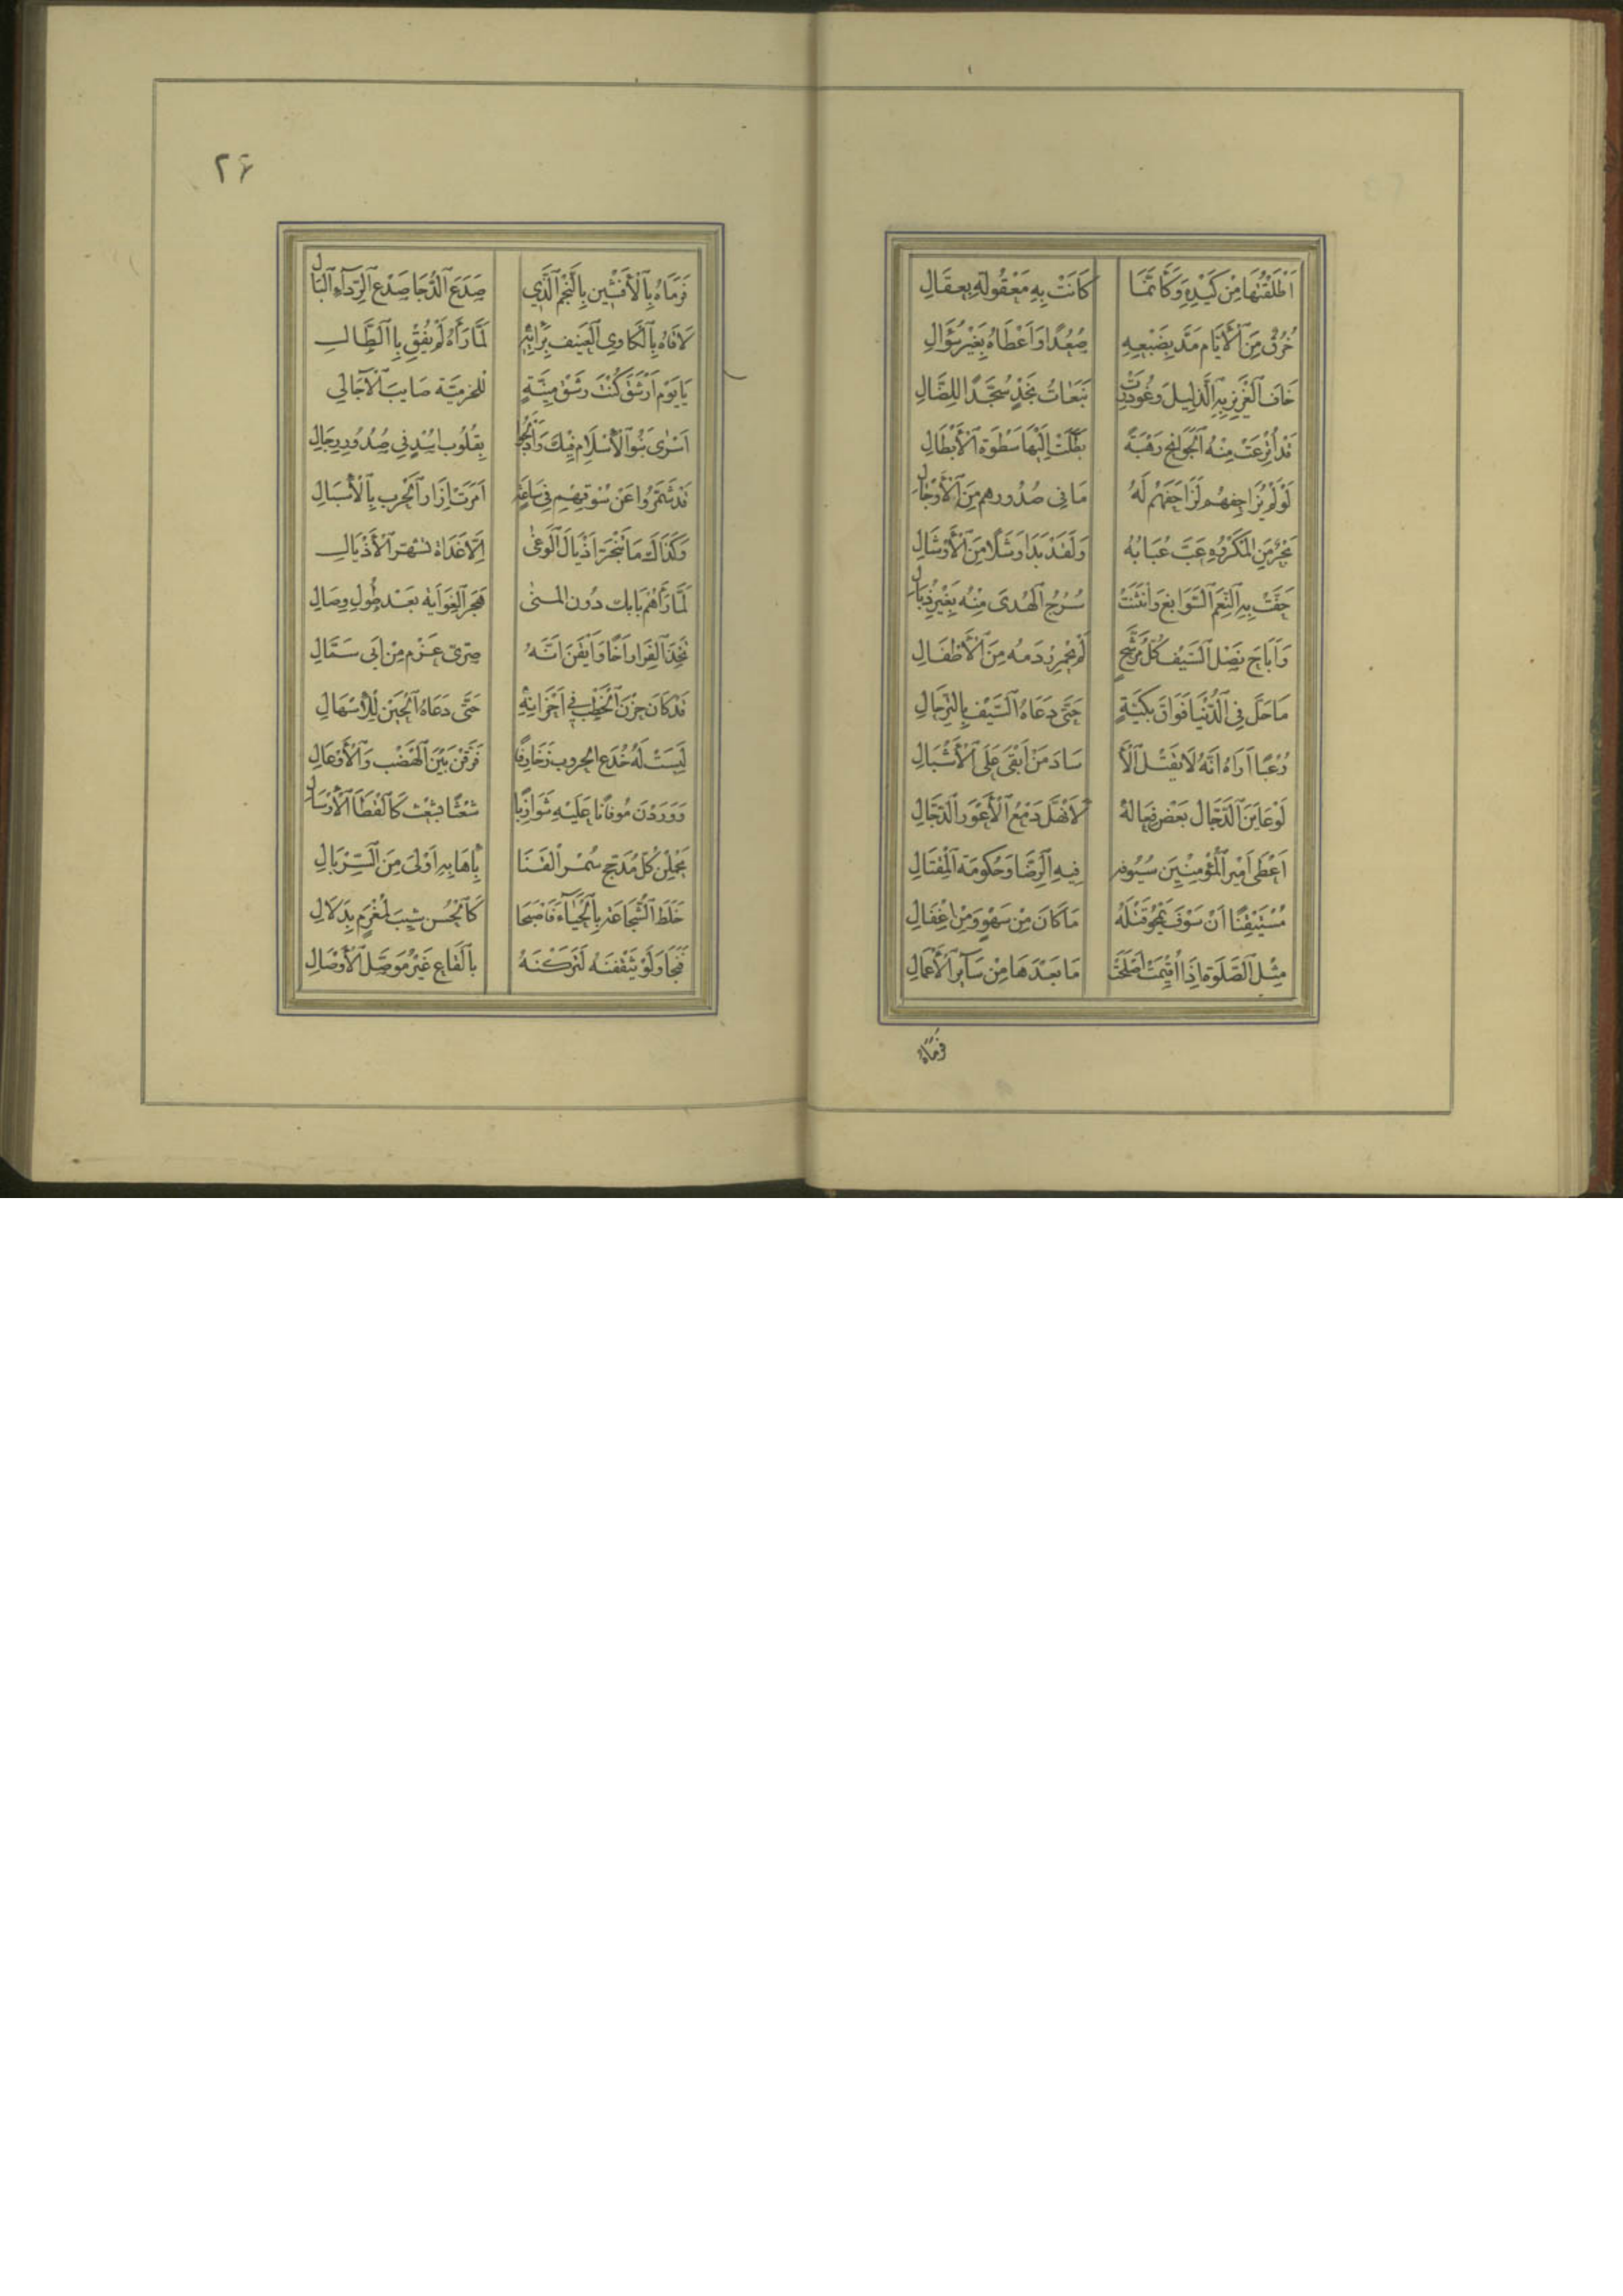 اَطْلَقْتَهَا مِنْ كَيْدِهِ وَكَأَنَّمَا كَانَتْ بِهِ مَعْقُولَةً بِعِقَالِ
خُرُقٌ مِنَ الْأَيَّامِ مَدَّ بِضَبْعِهِ صُعُدًا وَاَعْطَاهُ بِغَيْرِ سُؤَالِ
خَافَ الْعَزِيزُ بِهِ الذَّلِيلَ وَغُودِرَتْ نَبَعَاتُ نَجْدٍ سُجَّدًا لِلضَّالِ
قَدْ أُتْرِعَتْ مِنْهُ الْجَوَانِحُ رَهْبَةً بَطَلَتْ لَدَيْهَا سَطْوَةُ الْأَبْطَالِ
لَوْ لَمْ يُزَاحِفْهُمْ لَزَاحَفَهُمْ لَهُ مَا فِي صُدُورِهِمْ مِنَ الْأَوْجَالِ
بَحْرٌ مِنَ الْمَكْرُوهِ عَبَّ عُبَابُهُ وَلَقَدْ بَدَا وَشَلًا مِنَ الْأَوْشَالِ
جَفَّتْ بِهِ النِّعَمُ السَّوَابِغُ وَانْثَنَتْ سُرُجُ الْهُدَى مِنْهُ بِغَيْرِ ذُبَالِ
وَاَبَاحَ نَصْلُ السَّيْفِ كُلَّ مُرَشَّحٍ لَمْ يَحْمِرْ دَمُهُ مِنَ الْأَطْفَالِ
مَا حَلَّ فِي الدُّنْيَا فَوَاقَ بَكِيَّةٍ حَتَّى دَعَاهُ السَّيْفُ بِالتَّرْحَالِ
رُعْبًا اَرَاهُ اَنَّهُ لَا يَقْتُلُ الْأَ سَادَ مَنْ اَبْقَى عَلَى الْأَشْبَالِ
لَوْ عَايَنَ الدَّجَّالُ بَعْضَ فِعَالِهِ لَانْهَلَّ دَمْعُ الْأَعْوَرِ الدَّجَّالِ
اَعْطَى اَمِيرُ الْمُؤْمِنِينَ سُيُوفَهُ فِيهِ الرِّضَا وَحُكُومَةَ الْمُقْتَالِ
مُسْتَيْقِنًا اَنْ سَوْفَ يَمْحُو قَتْلُهُ مَا كَانَ مِنْ سَهْوٍ وَمِنْ اِغْفَالِ
مِثْلُ الصَّلٰوةِ اِذَا اُقِيمَتْ اَصْلَحَتْ مَا بَعْدَهَا مِنْ سَآئِرِ الْأَعْمَالِ
فَرَمَاهُ
۲۶
فَرَمَاهُ بِالْأَفْشِينِ بِالنَّجْمِ الَّذِي صَدَعَ الدُّجَا صَدْعَ الرِّدَآءِ الْبَالِ
لَاقَاهُ بِالْكَاوِي الْعَنِيفِ بِدَائِهِ لَمَّا رَآهُ لَمْ يُفِقْ بِالطَّالِ
يَا يَوْمَ اَرْشَقَ كُنْتَ رَشْقَ مَنِيَّةٍ لِلْخُرَّمِيَّةِ صَايِبَ الْآجَالِي
اَسْرَى بَنُو الْأِسْلَامِ فِيكَ وَاَدْلَجُوا بِقُلُوبِ اُسْدٍ فِي صُدُورِ رِجَالِ
قَدْ شَمَّرُوا عَنْ سُوقِهِمْ فِي سَاعَةٍ اَمَرَتْ اِزَارَ الْحَرْبِ بِالْأِسْبَالِ
وَكَذَاكَ مَا تَنْجَرُّ اَذْيَالُ الْوَغَى اِلَّا غَدَاةَ تَشَمُّرِ الْأَذْيَالِ
لَمَّا رَآهُمْ بَابَكٌ دُونَ الْمُنَى هَجَرَ الْغِوَايَةَ بَعْدَ طُولِ وِصَالِ
تَخِذَ الْفِرَارَ اَخًا وَاَيْقَنَ اَنَّهُ صِرِّيُّ عَزْمٍ مِنْ اَبِي سَمَّالِ
قَدْ كَانَ حَزْنُ الْخَطْبِ فِي اَحْزَانِهِ حَتَّى دَعَاهُ الْحَيْنُ لِلْأِسْهَالِ
لَبِسَتْ لَهُ خُدَعُ الْحُرُوبِ زَخَارِفًا فَرَّقْنَ بَيْنَ الْهَضْبِ وَالْأَوْعَالِ
وَوَرَدْنَ مُوقَانًا عَلَيْهِ شَوَازِبًا شُعْثًا بِشُعْثٍ كَالْقَطَا الْأَرْسَالِ
يَحْمِلْنَ كُلَّ مُدَجَّجٍ سُمْرُ الْقَنَا بِاِهَابِهِ اَوْلَى مِنَ السِّرْبَالِ
خَلَطَ الشَّجَاعَةَ بِالْحَيَآءِ فَاَصْبَحَا كَالْحُسْنِ شِيبَ لِمُغْرَمٍ بِدَلَالِ
فَنَجَا وَلَوْ يَثْقَفْنَهُ لَتَرَكْنَهُ بِالْقَاعِ غَيْرَ مُوَصَّلِ الْأَوْصَالِ